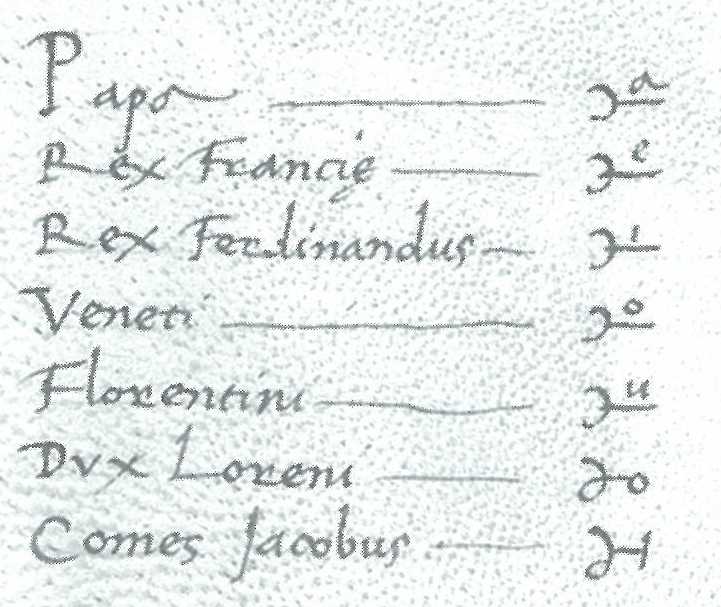 Papa
Rex Francie
Rex Ferdinandus
Veneti
Florentini
Dux Loreni
Comes Jacobus